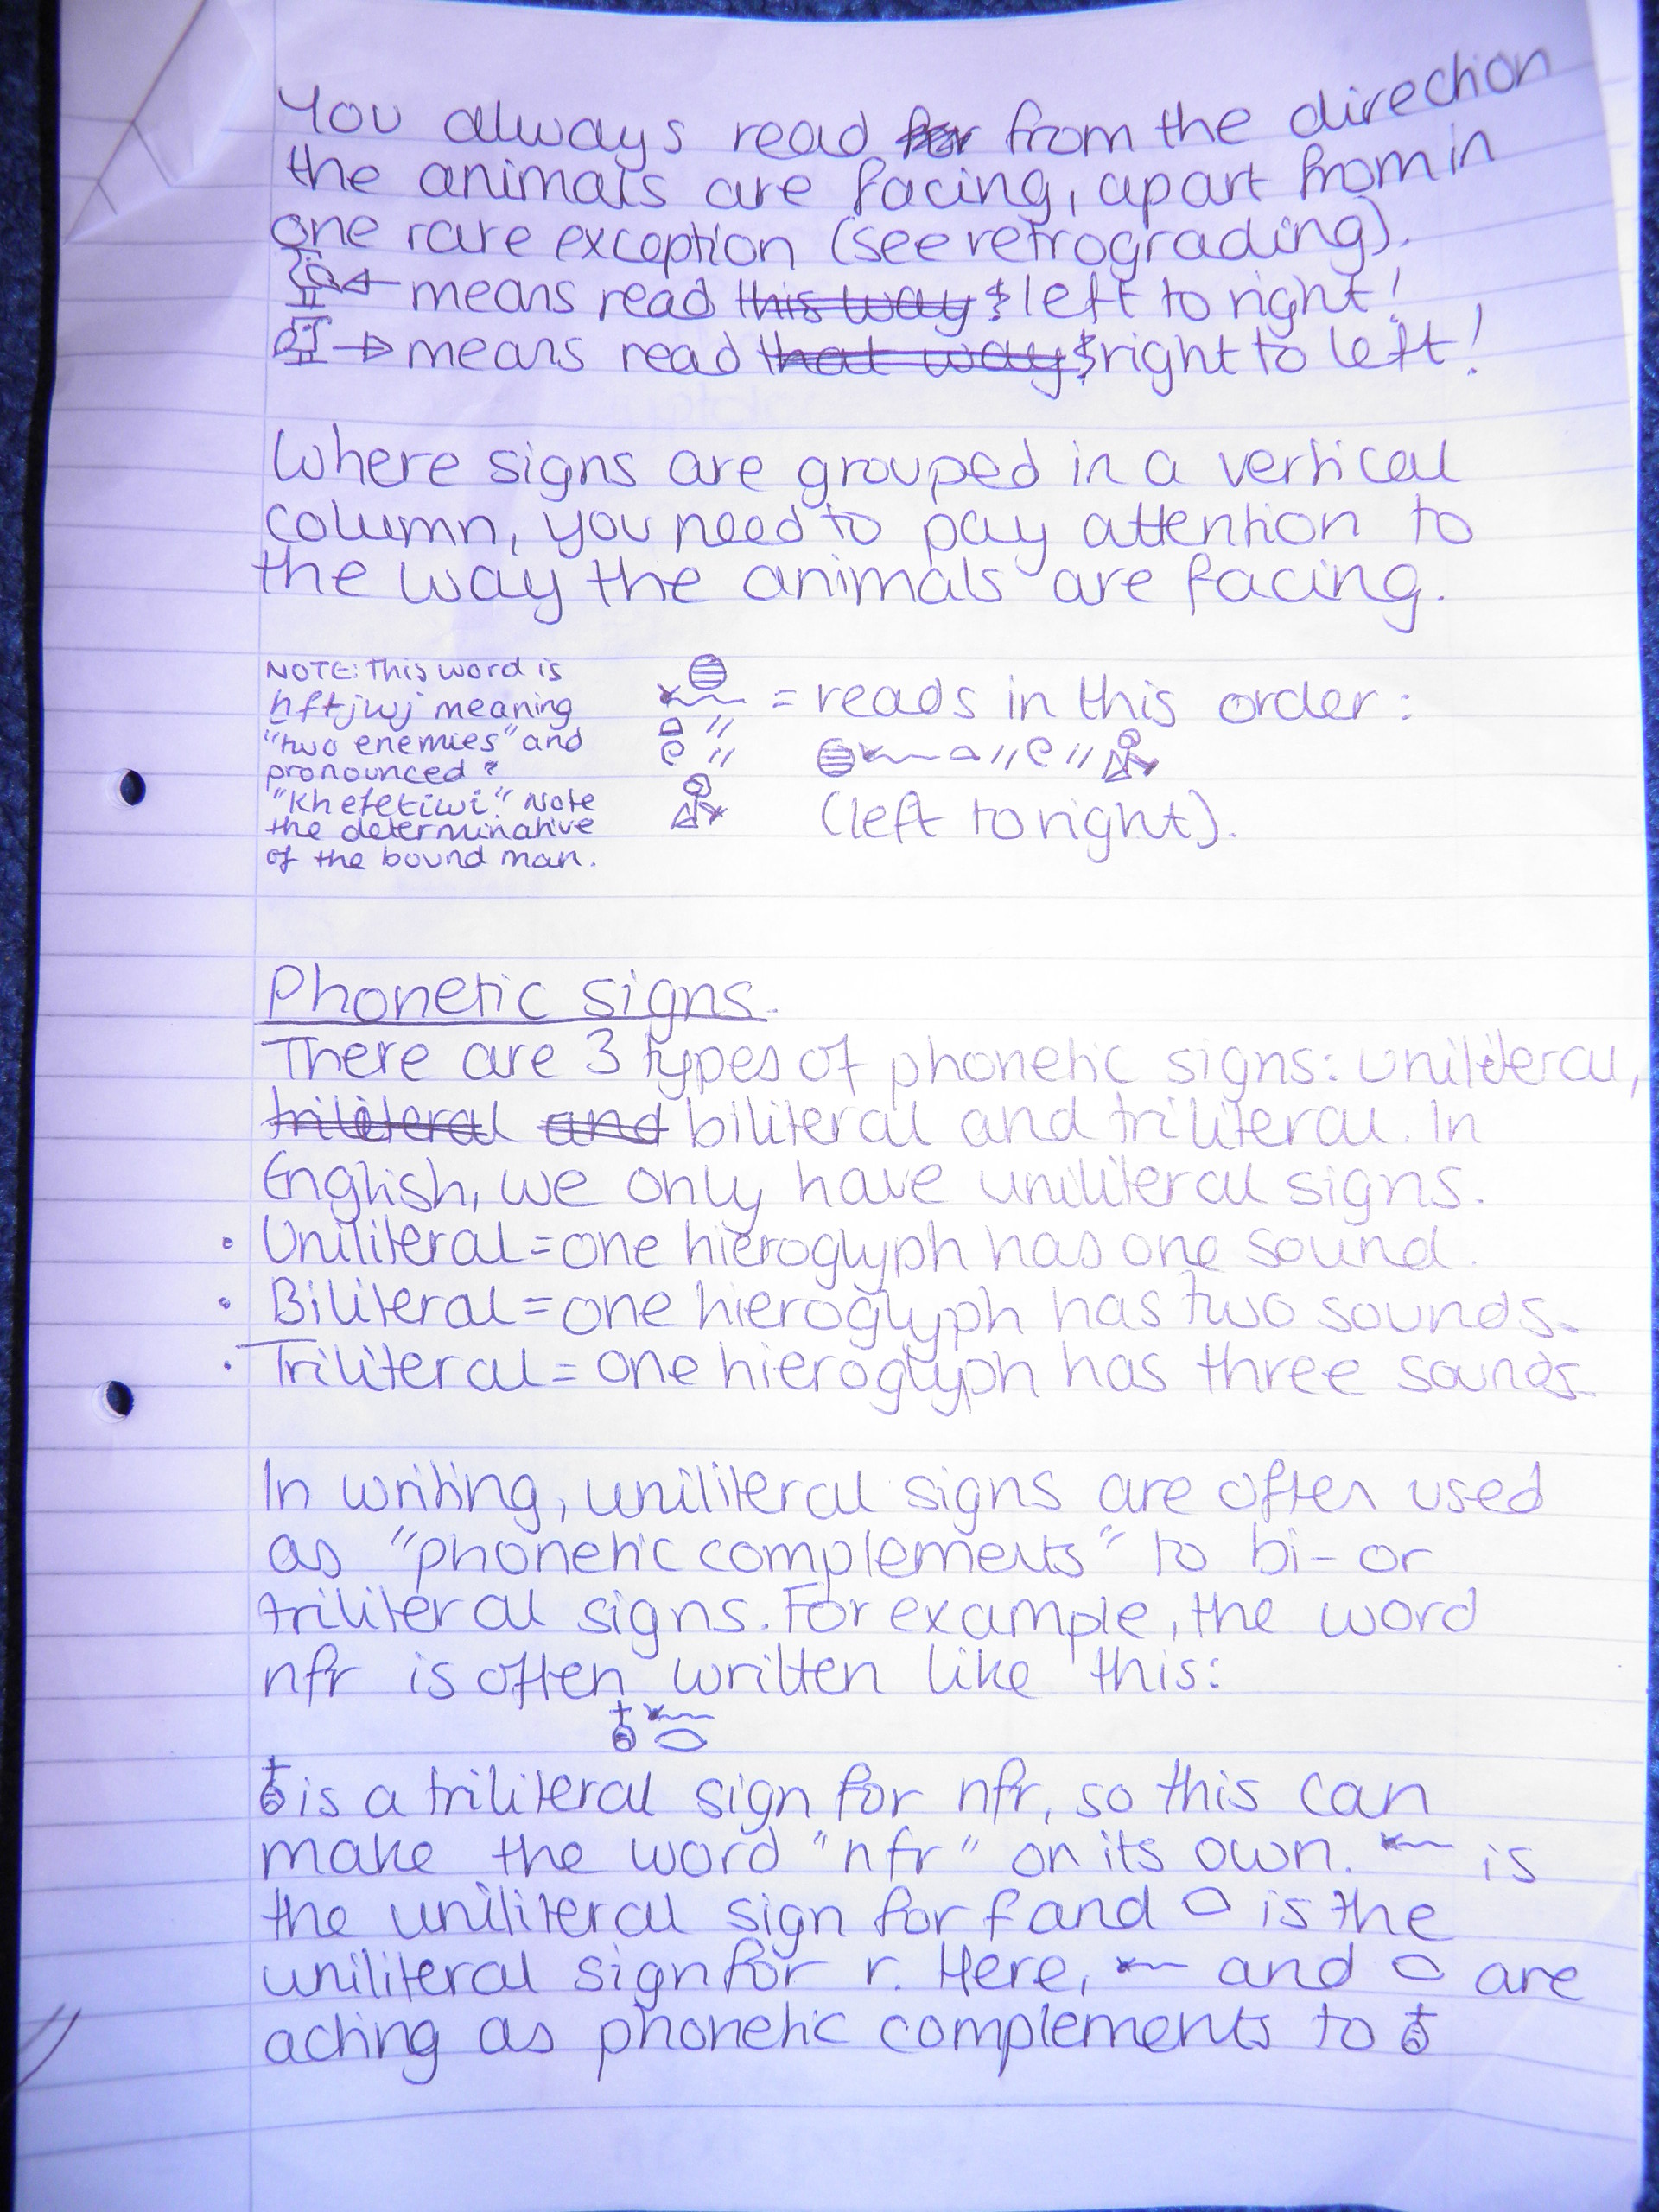 You always read from the direction
the animals are facing, apart from in
one rare exception (see retrograding).
means read this way left to right!
means read that way right to left!
Where signs are grouped in a vertical
column, you need to pay attention to
the way the animals are facing.
NOTE: This word is
ḫftjwj meaning
"two enemies" and
pronounced ?
"Khefetiwi". Note
the determinative
of the bound man.
= reads in this order:
(left to right).
Phonetic signs.
There are 3 types of phonetic signs: uniliteral,
triliteral and biliteral and triliteral. In
English, we only have uniliteral signs.
• Uniliteral = one hieroglyph has one sound.
• Biliteral = one hieroglyph has two sounds.
• Triliteral = one hieroglyph has three sounds.
In writing, uniliteral signs are often used
as "phonetic complements" to bi- or
triliteral signs. For example, the word
nfr is often written like this:
𓄤𓆑𓂋
𓄤 is a triliteral sign for nfr, so this can
make the word "nfr" on its own. 𓆑 is
the uniliteral sign for f and 𓂋 is the
uniliteral sign for r. Here, 𓆑 and 𓂋 are
acting as phonetic complements to 𓄤